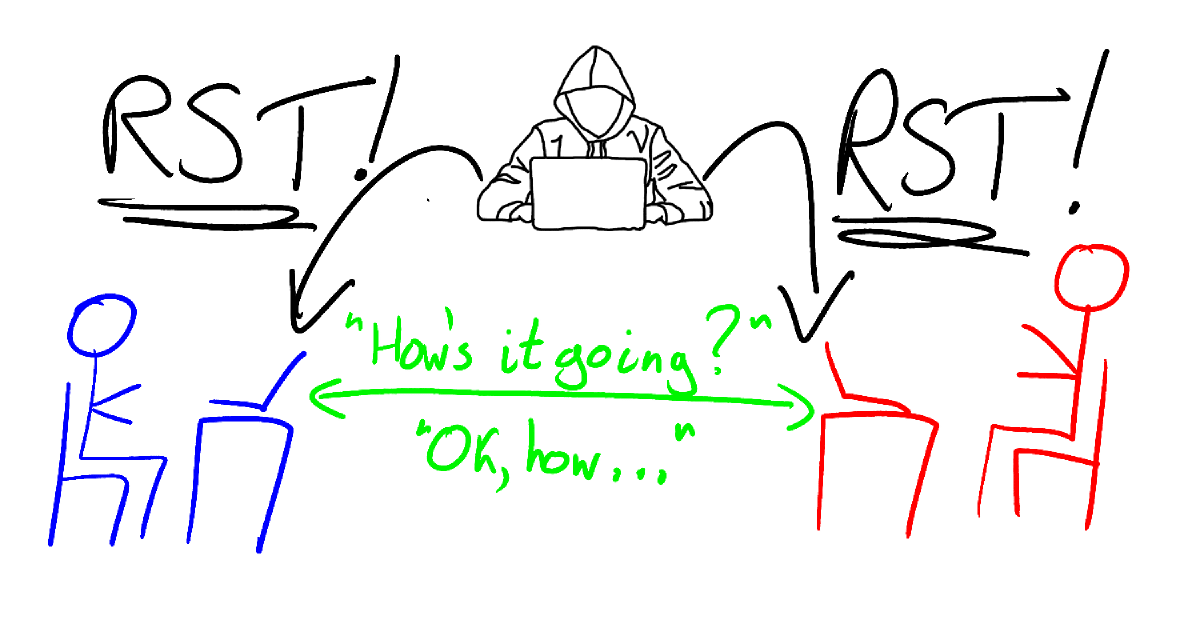 RST!
RST!
"How's it going?"
"Ok, how..."